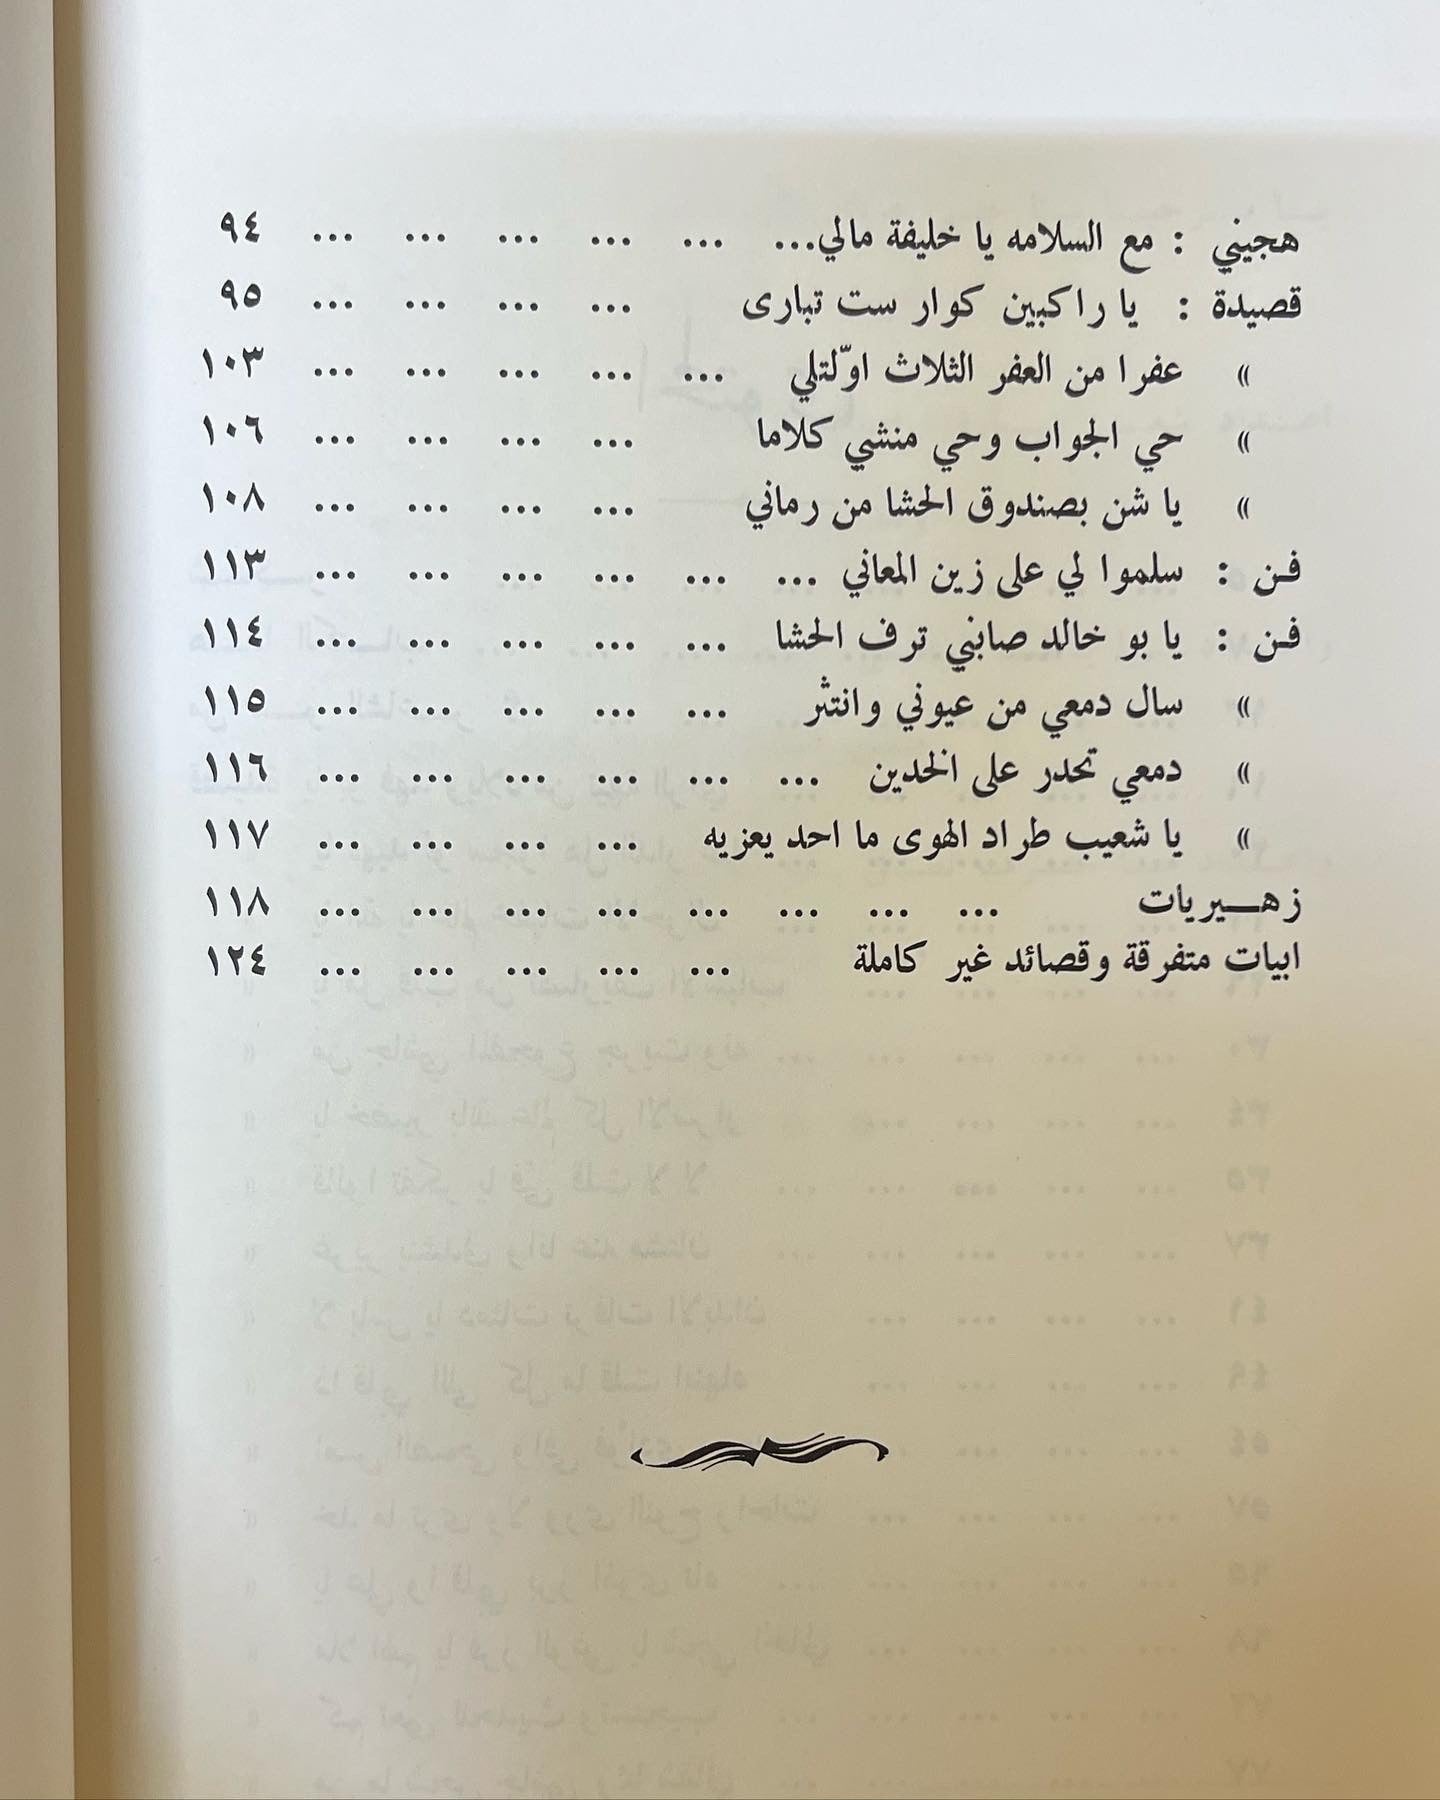 هجيني : مع السلامه يا خليفة مالي... ... ... ... ... ... ٩٤
قصيدة : يا راكبين كوار ست تبارى ... ... ... ... ٩٥
» عفرا من العفر الثلاث اوّلتلي ... ... ... ... ... ١٠٣
» حي الجواب وحي منشي كلاما ... ... ... ... ١٠٦
» يا شن بصندوق الحشا من رماني ... ... ... ... ١٠٨
فن : سلموا لي على زين المعاني ... ... ... ... ... ... ١١٣
فن : يا بو خالد صابني ترف الحشا ... ... ... ... ... ١١٤
» سال دمعي من عيوني وانتثر ... ... ... ... ... ١١٥
» دمعي تحدر على الخدين ... ... ... ... ... ... ١١٦
» يا شعيب طراد الهوى ما احد يعزيه ... ... ... ... ١١٧
زهـــيريات ... ... ... ... ... ... ... ... ١١٨
ابيات متفرقة وقصائد غير كاملة ... ... ... ... ... ١٢٤